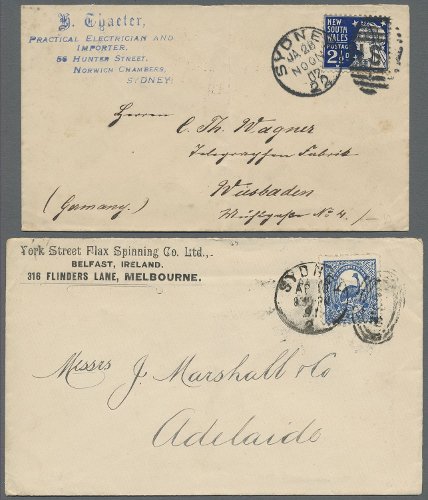 H. Thaeter,
PRACTICAL ELECTRICIAN AND
IMPORTER,
56 HUNTER STREET,
NORWICH CHAMBERS,
SYDNEY
SYDNEY
JA 28
NOON
02
22
NEW SOUTH
WALES
POSTAGE
2½D
Herren
C. Th. Wagner
Telegraphen Fabrik
Wiesbaden
(Germany)
York Street Flax Spinning Co. Ltd.,
BELFAST, IRELAND.
316 FLINDERS LANE, MELBOURNE.
SYDNEY
AP
91
2
Messrs J. Marshall & Co
Adelaide